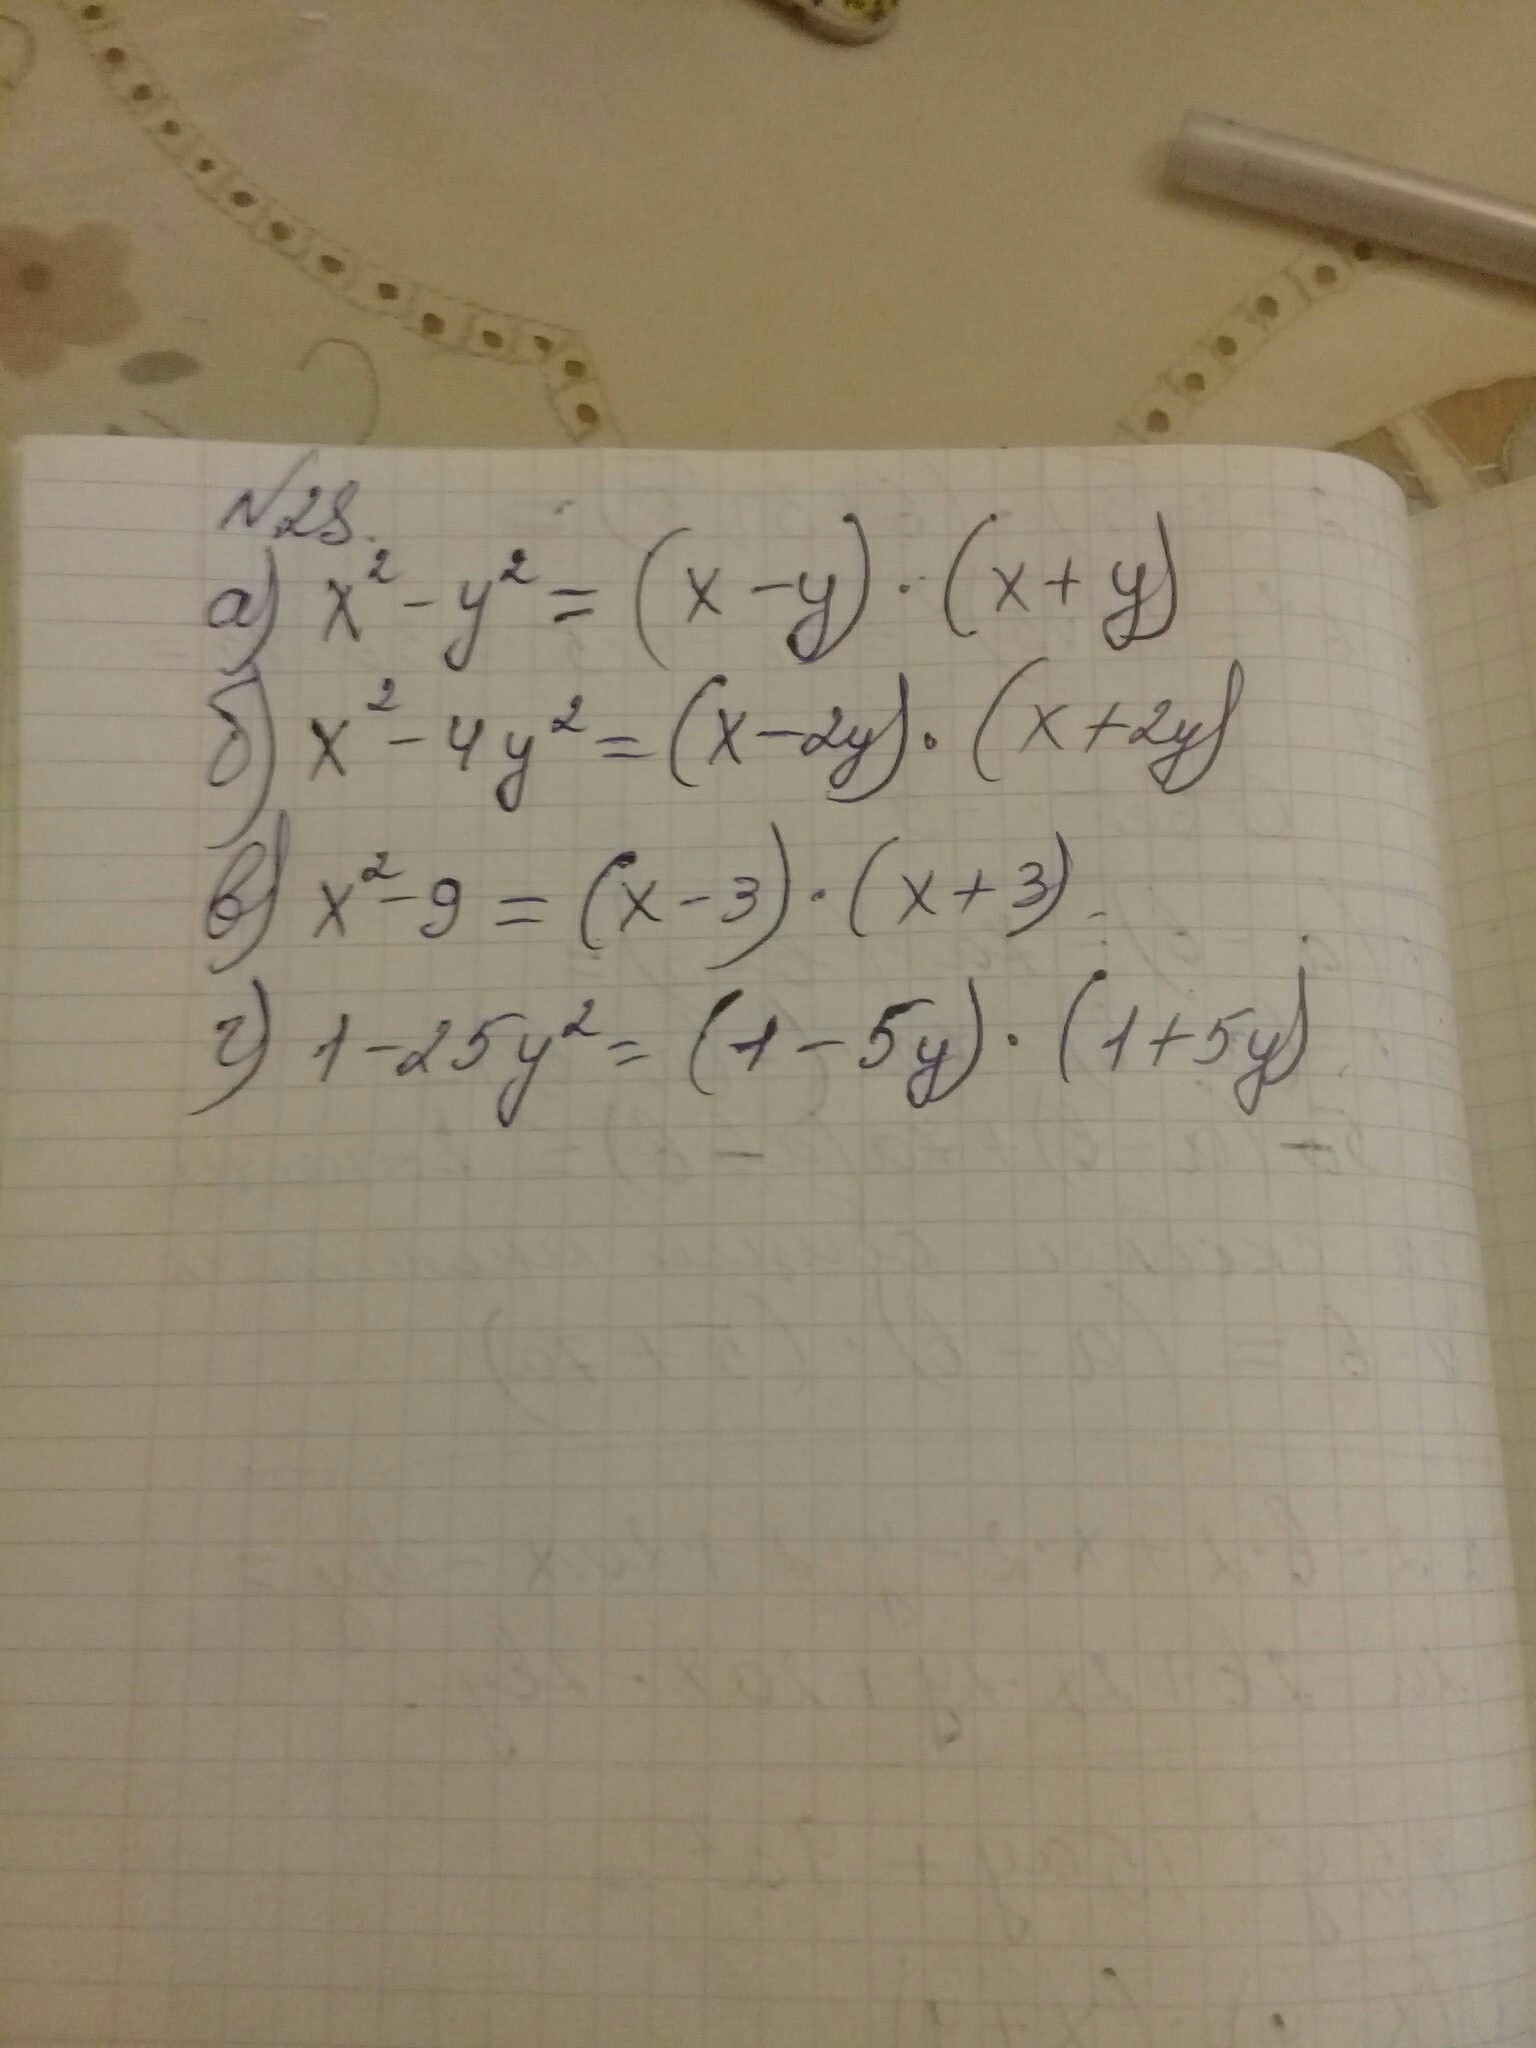 №28.
а) x² - y² = (x - y) · (x + y)
б) x² - 4y² = (x - 2y) · (x + 2y)
в) x² - 9 = (x - 3) · (x + 3)
г) 1 - 25y² = (1 - 5y) · (1 + 5y)